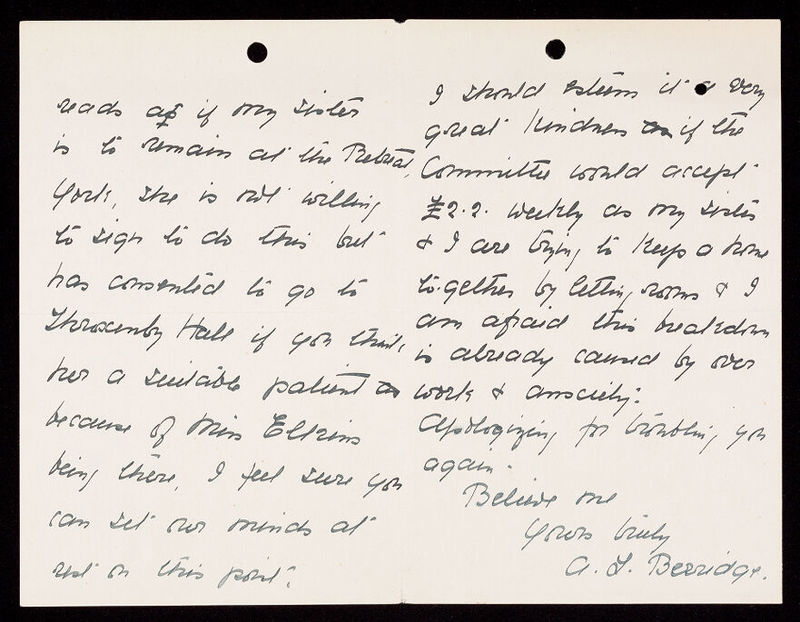 reads as if my sister
is to remain at the Retreat,
York, she is not willing
to sign to do this but
has consented to go to
Throxenby Hall if you think
her a suitable patient as
because of Miss Elkins
being there, I feel sure you
can set our minds at
rest on this point.
I should esteem it a very
great kindness if the
Committee would accept
£2.2. weekly as my sister
& I are trying to keep a home
to-gether by letting rooms & I
am afraid this breakdown
is already caused by over
work & anxiety.
Apologizing for troubling you
again.
Believe me
Yours truly
A. L. Berridge.